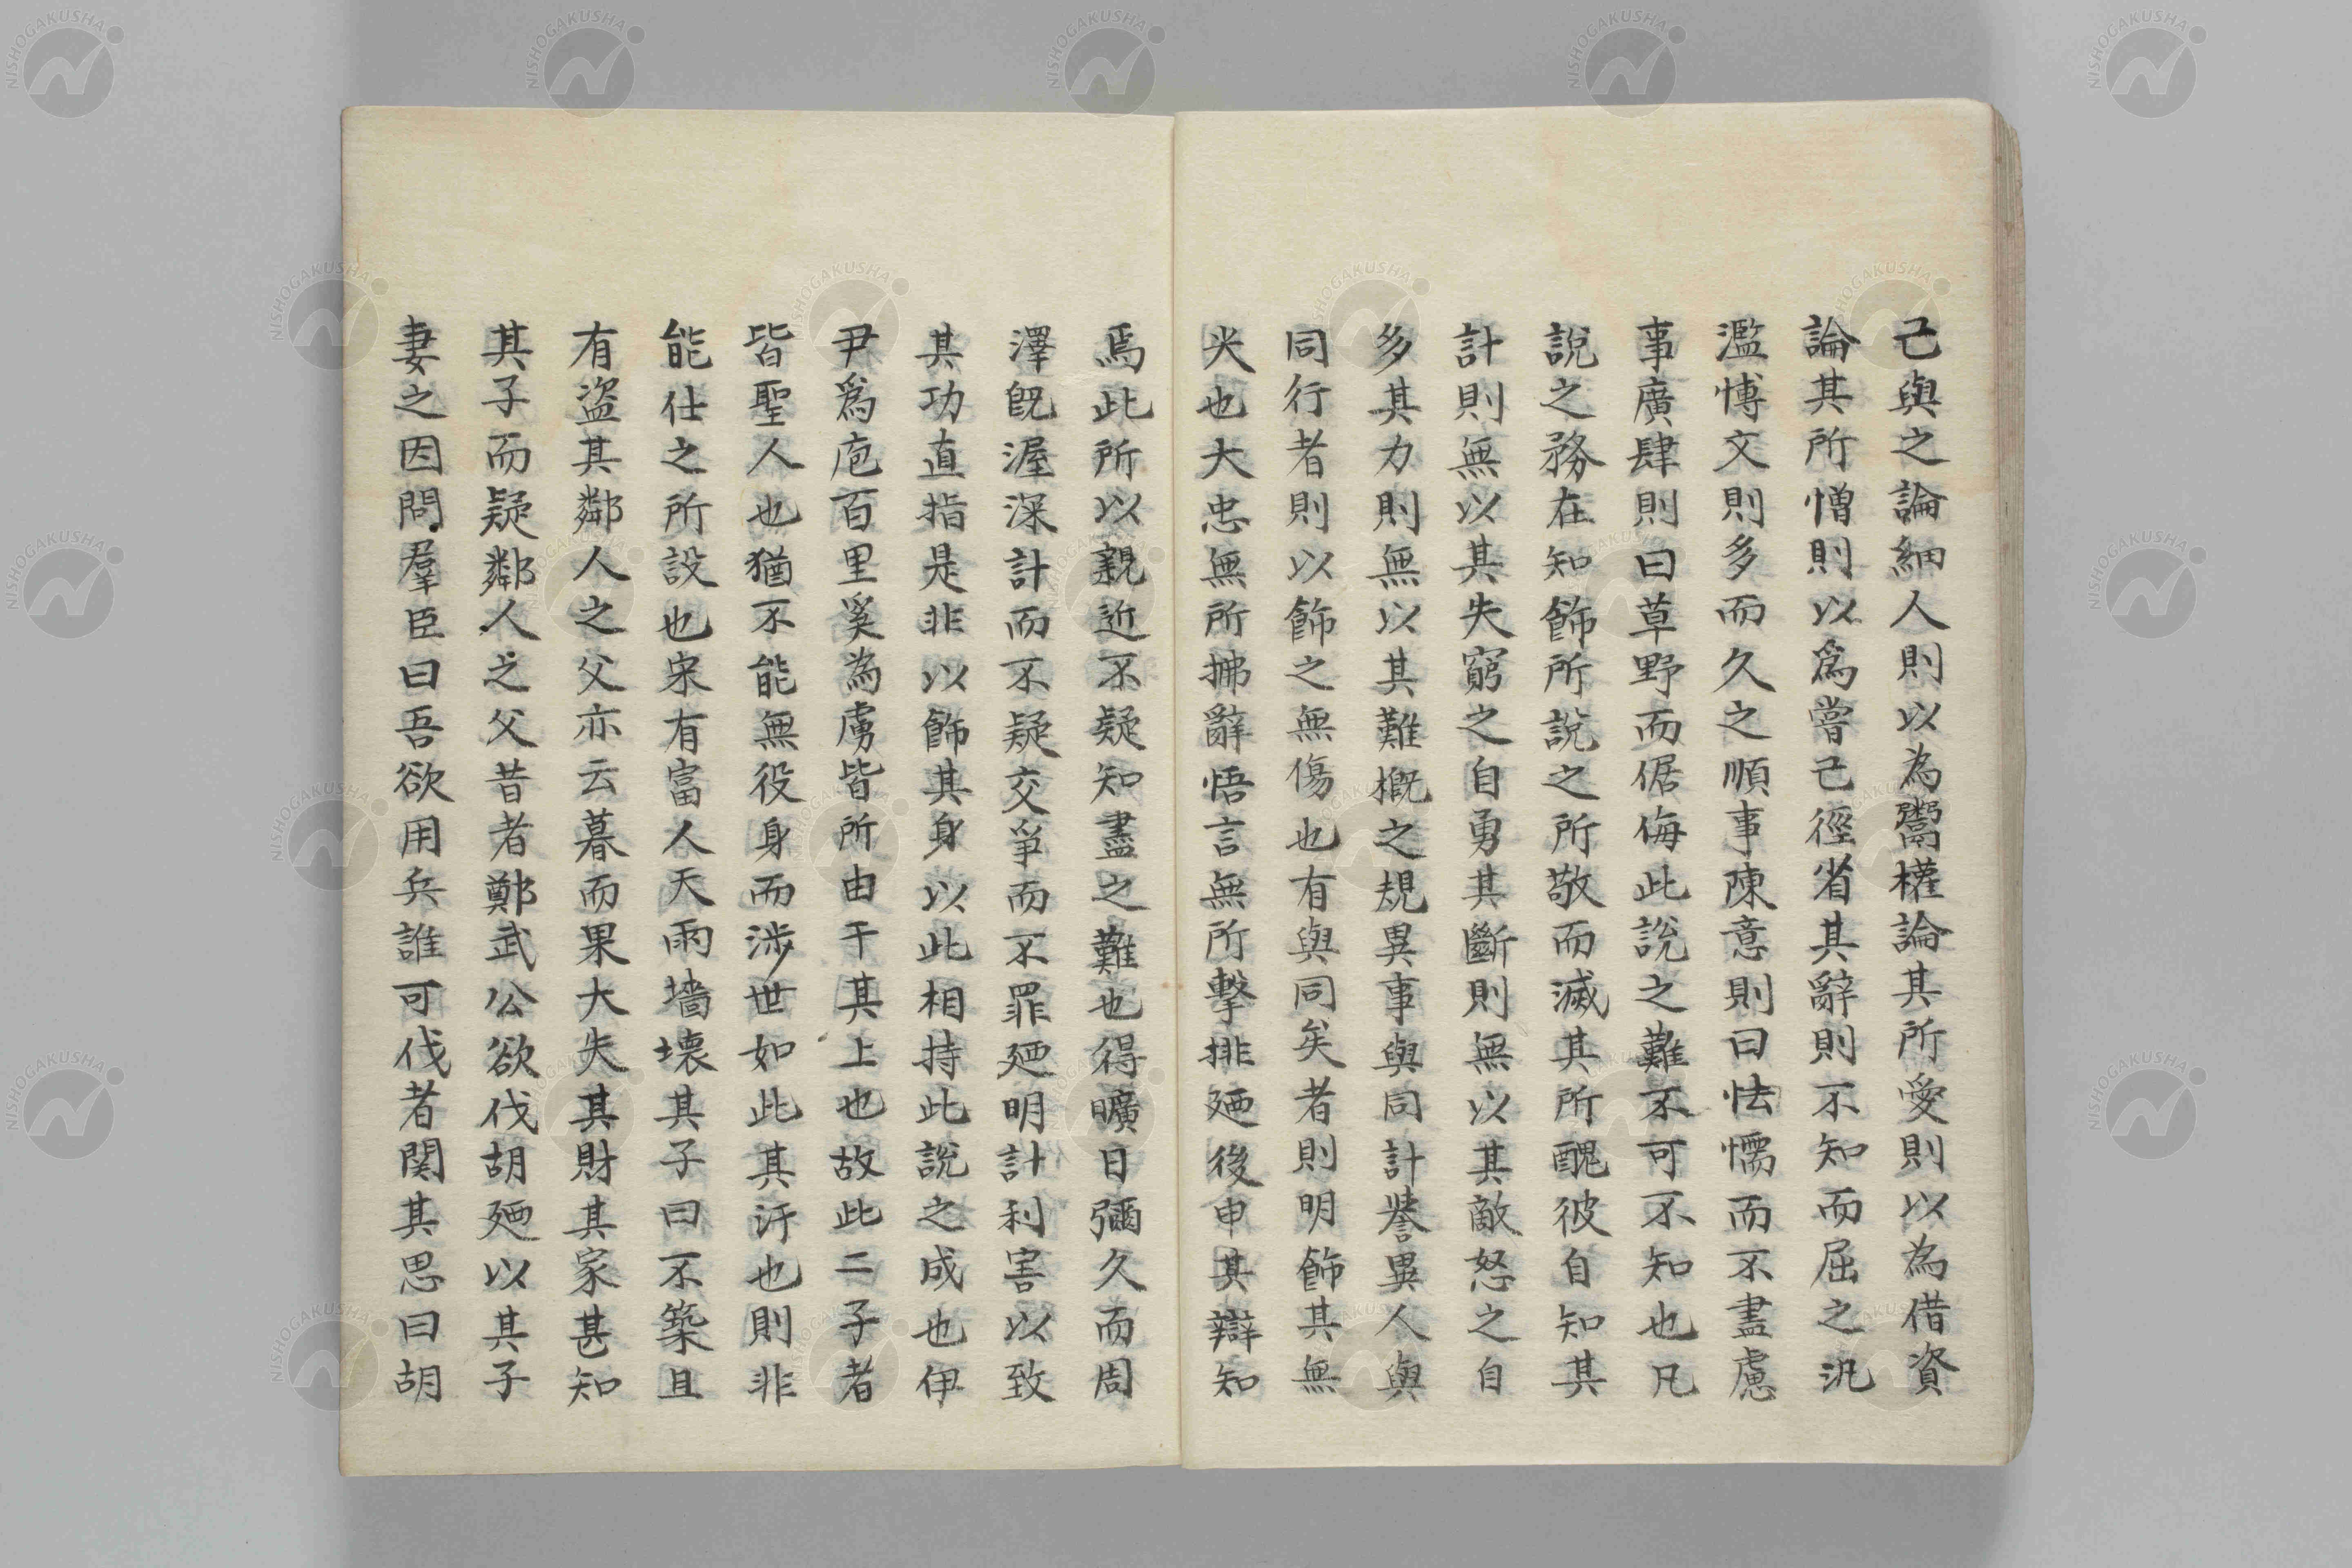 己與之論細人則以為鬻權論其所愛則以為借資
論其所憎則以爲嘗己徑省其辭則不知而屈之汎
濫慱文則多而久之順事陳意則曰怯懦而不盡慮
事廣肆則曰草野而倨侮此說之難不可不知也凡
說之務在知飾所說之所敬而滅其所醜彼自知其
計則無以其失窮之自勇其斷則無以其敵怒之自
多其力則無以其難概之規異事與同計譽異人與
同行者則以飾之無傷也有與同矣者則明飾其無
失也大忠無所拂辭悟言無所擊排廼後申其辯知
焉此所以親近不疑知盡之難也得曠日彌久而周
澤既渥深計而不疑交爭而不罪廼明計利害以致
其功直指是非以飾其身以此相持此說之成也伊
尹爲庖百里奚為虜皆所由干其上也故此二子者
皆聖人也猶不能無役身而渉世如此其汙也則非
能仕之所設也宋有富人天雨墻壞其子曰不築且
有盜其鄰人之父亦云暮而果大失其財其家甚知
其子而疑鄰人之父昔者鄭武公欲伐胡廼以其子
妻之因問羣臣曰吾欲用兵誰可伐者関其思曰胡
NISHOGAKUSHA